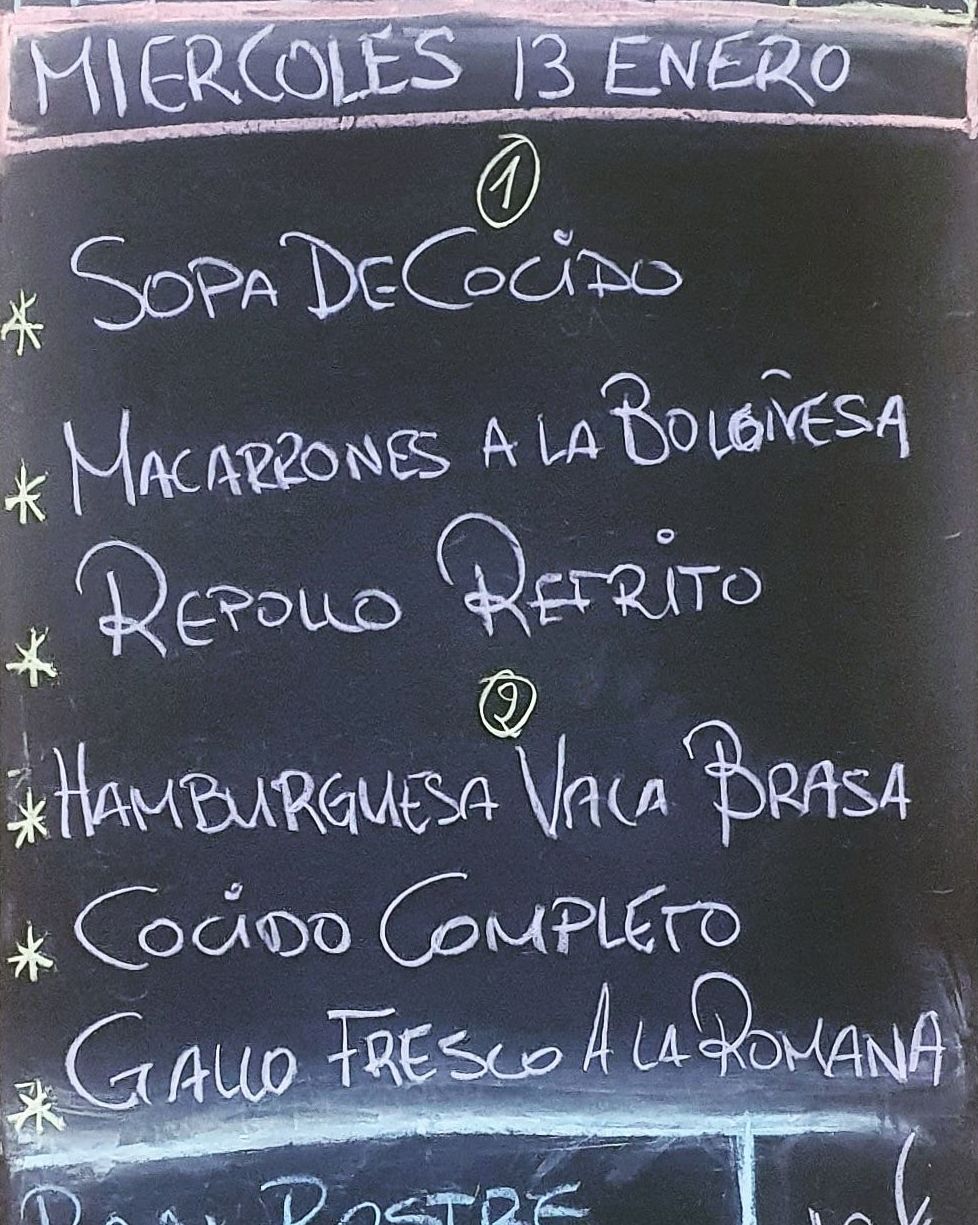 MIERCOLES 13 ENERO
1
* SOPA DE COCIDO
* MACARRONES A LA BOLOÑESA
* REPOLLO REFRITO
2
* HAMBURGUESA VACA BRASA
* COCIDO COMPLETO
* GALLO FRESCO A LA ROMANA
POSTRE